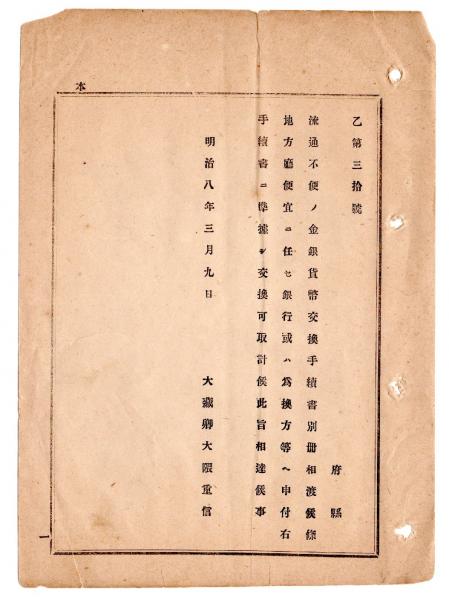 乙第三拾號
府縣
流通不便ノ金銀貨幣交換手續書別冊相渡候條
地方廳便宜ニ任セ銀行或ハ爲換方等ヘ申付右
手續書ニ準據シ交換可取計候此旨相達候事
明治八年三月九日
大藏卿大隈重信
本
一